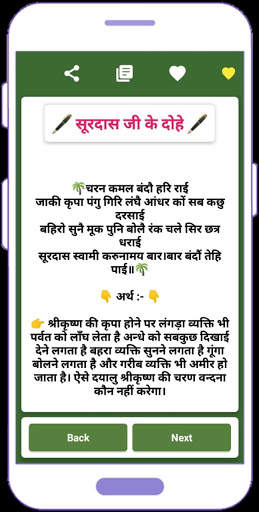 सूरदास जी के दोहे
चरन कमल बंदौ हरि राई
जाकी कृपा पंगु गिरि लंघै आंधर कों सब कछु
दरसाई
बहिरो सुनै मूक पुनि बोलै रंक चले सिर छत्र
धराई
सूरदास स्वामी करुनामय बार।बार बंदौं तेहि
पाई॥
अर्थ :-
श्रीकृष्ण की कृपा होने पर लंगड़ा व्यक्ति भी
पर्वत को लाँघ लेता है अन्धे को सबकुछ दिखाई
देने लगता है बहरा व्यक्ति सुनने लगता है गूंगा
बोलने लगता है और गरीब व्यक्ति भी अमीर हो
जाता है। ऐसे दयालु श्रीकृष्ण की चरण वन्दना
कौन नहीं करेगा।
Back Next